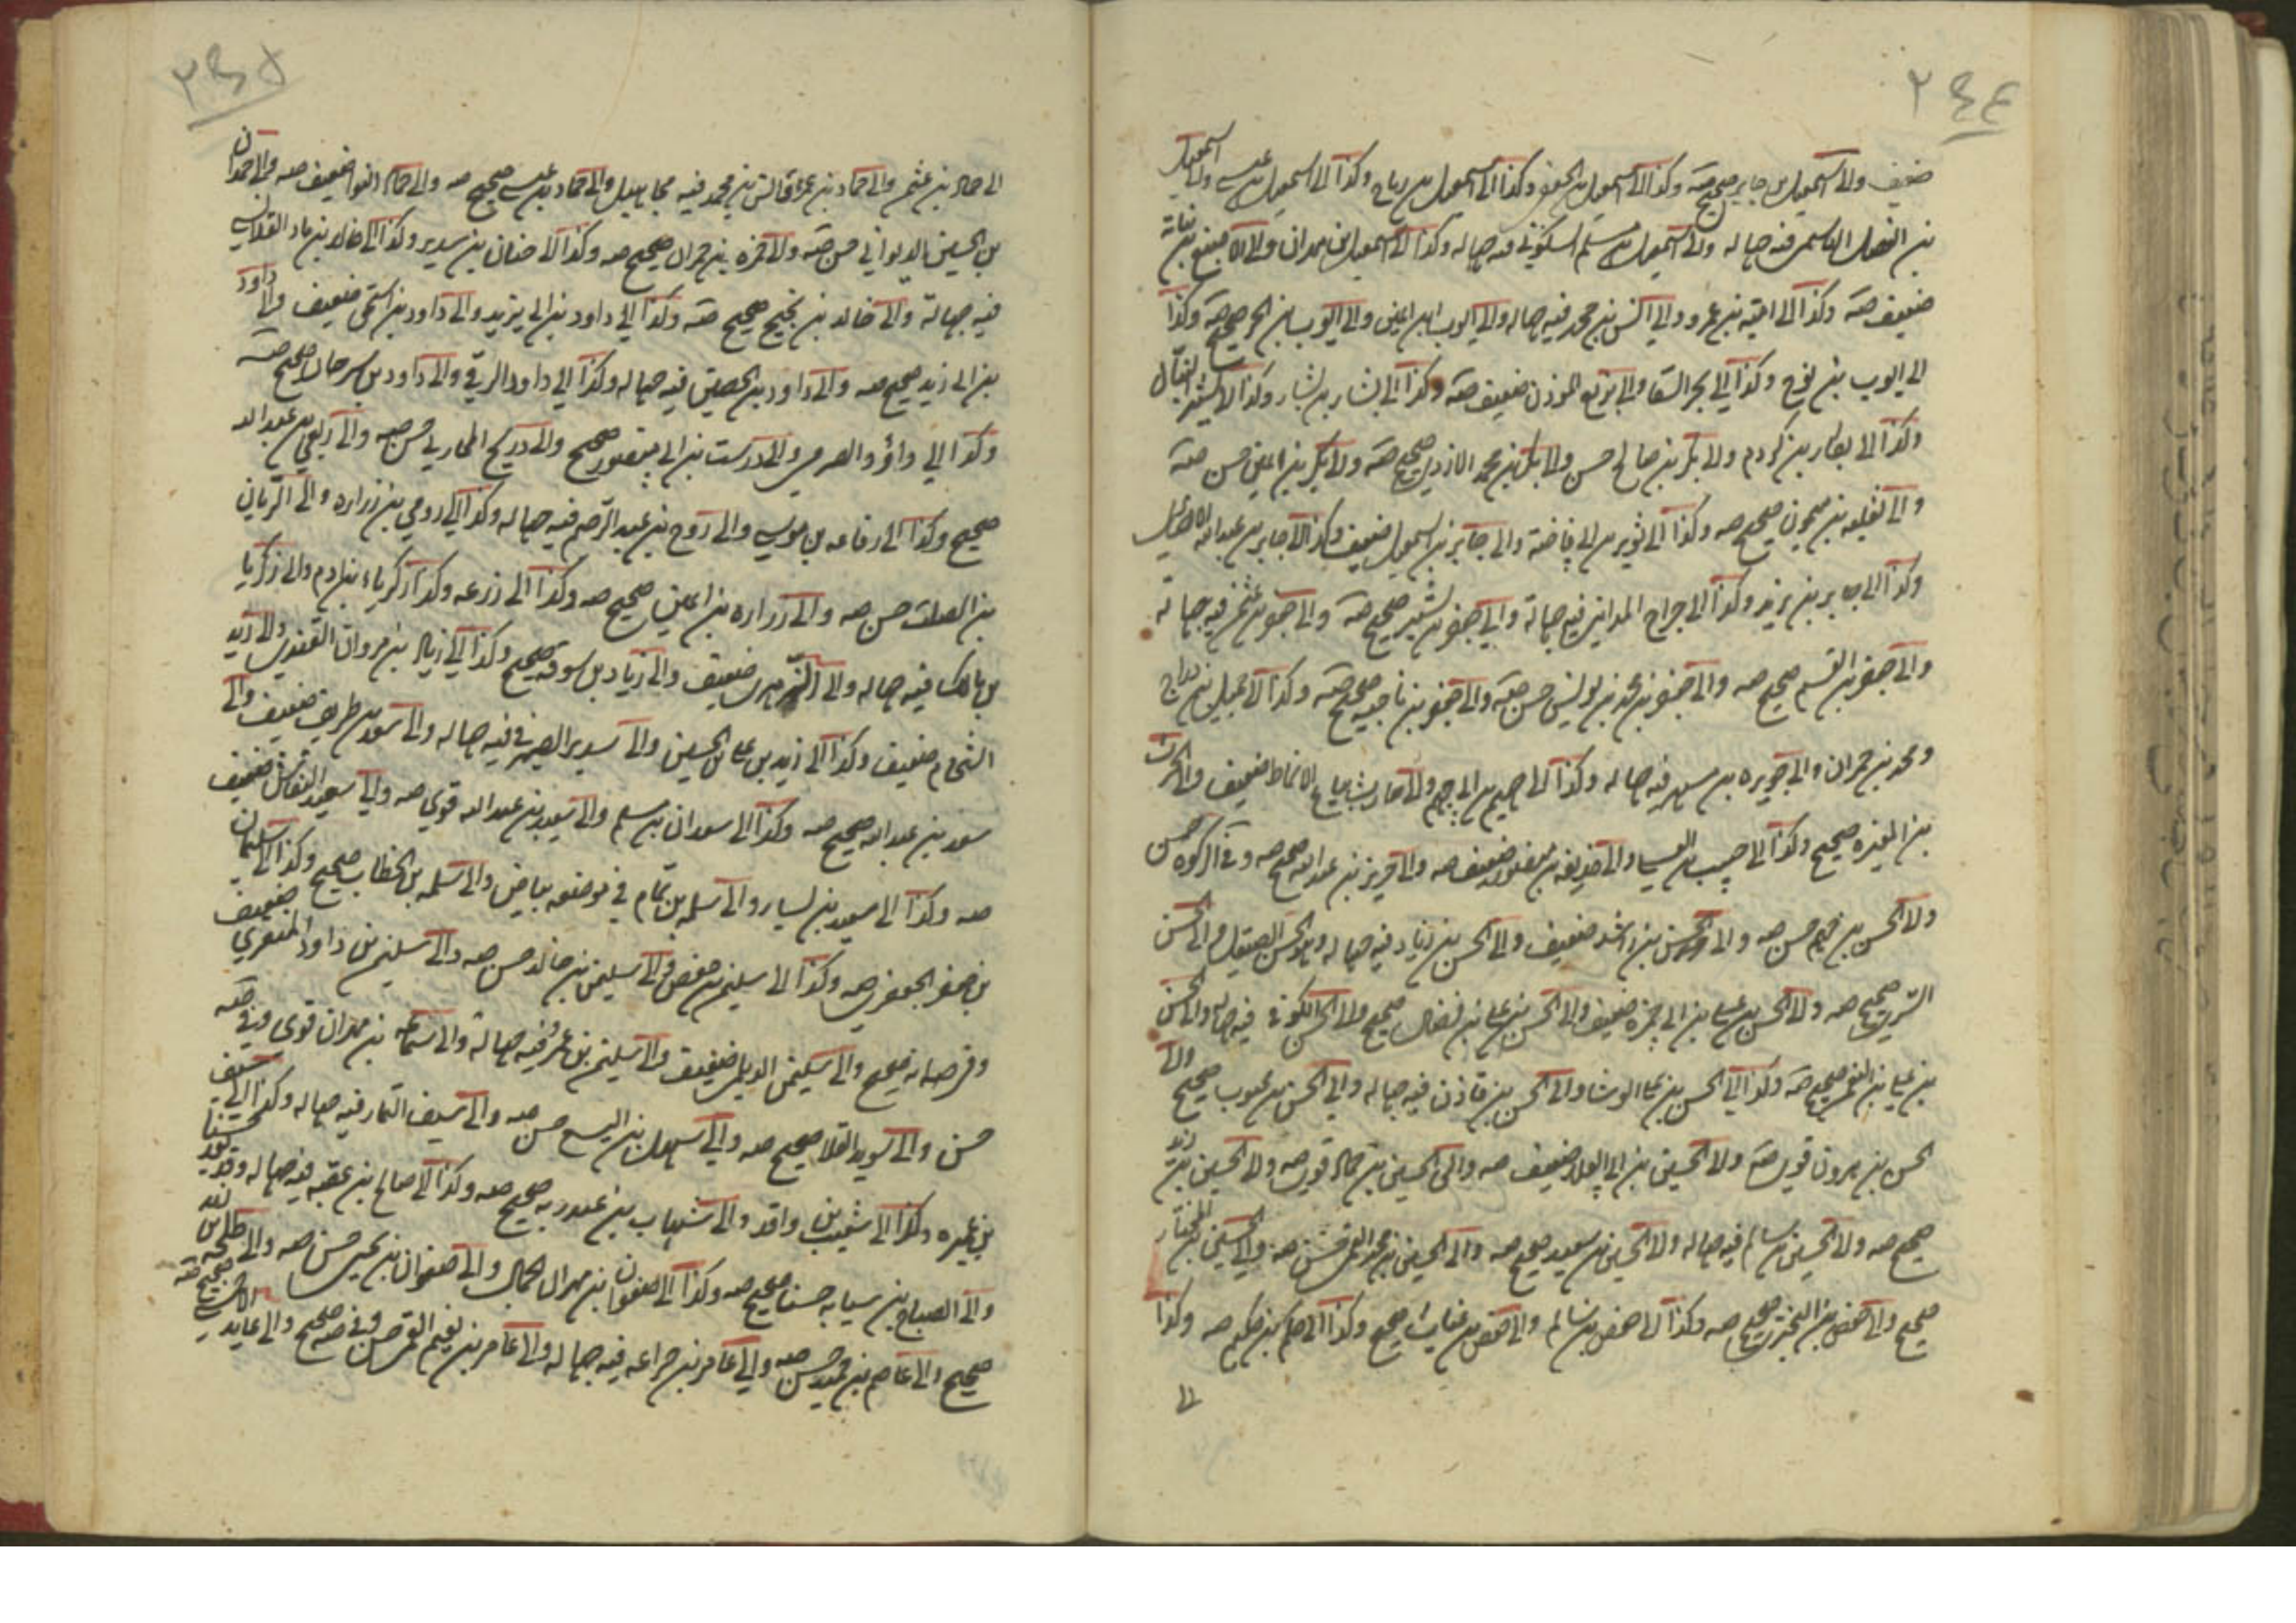 ٢٤٤
ضعيف والى اسمعيل بن جابر صحيح صه وكذا الى اسمعيل بن الجعفى وكذا الى اسمعيل بن رباح وكذا الى اسمعيل بن عيسى والى اسمعيل
بن الفضل الهاشمى فيه جهاله والى اسمعيل بن مسلم السكونى فيه جهاله وكذا الى اسمعيل بن مهران والى الاصبغ بن نباته
ضعيف صه وكذا الى اميه بن عمرو والى انس بن محمد فيه جهاله والى ايوب بن اعين والى ايوب بن الحر صحيح صه وكذا
الى ايوب بن نوح وكذا الى بحر السقا والى بزيع الموذن ضعيف صه وكذا الى بشار بن يسار وكذا الى بشير النبال
وكذا الى بكار بن كردم والى بكر بن صالح حسن والى بكر بن محمد الازدى صحيح صه والى بكير بن اعين حسن صه
والى ثعلبه بن ميمون صحيح صه وكذا الى ثوير بن ابى فاخته والى جابر بن اسمعيل ضعيف وكذا الى جابر بن عبدالله الانصارى
وكذا الى جابر بن يزيد وكذا الى جراح المداينى فيه جهالة والى جعفر بن بشير صحيح صه والى جعفر بن عثمن فيه جهالة
والى جعفر بن القسم صحيح صه والى جعفر بن محمد بن يونس حسن صه والى جعفر بن ناجيه صحيح صه وكذا الى جميل بن دراج
ومحمد بن حمران والى جويريه بن مسهر فيه جهاله وكذا الى جهيم بن ابى جهم والى حارث بياع الانماط ضعيف والى الحرث
بن المغيره صحيح وكذا الى حبيب بن المعلى والى حذيفه بن منصور ضعيف صه والى حريز بن عبدالله صحيح صه وفى الزكوه حسن
والى الحسن بن جهم حسن صه والى الحسن بن راشد ضعيف والى الحسن بن زياد فيه جهاله والى الحسن الصيقل والى الحسن
السرى صحيح صه والى الحسن بن على بن ابى حمزه ضعيف والى الحسن بن على بن فضال صحيح والى الحسن الكوفى فيه جهاله والى الحسن
بن على بن النعمن صحيح صه وكذا الى الحسن بن على الوشا والى الحسن بن قاذن فيه جهاله والى الحسن بن محبوب صحيح والى
الحسن بن هرون قوى صه والى الحسين بن ابى العلا ضعيف صه والى الحسين بن حماد قوى صه والى الحسين بن زيد
صحيح صه والى الحسين بن سالم فيه جهاله والى الحسين بن سعيد صحيح صه والى الحسين بن محمد القمى حسن صه والى الحسين بن المختار
صحيح والى حفص بن البخترى صحيح صه وكذا الى حفص بن سالم والى حفص بن غياث صحيح وكذا الى حكم بن حكيم صه وكذا
الى
٢٤٥
الى حماد بن عثمن والى حماد بن عمرو وانس بن محمد فيه مجاهيل والى حماد بن عيسى صحيح صه والى حماد النوا ضعيف صه والى حمدان
بن الحسين الديوانى حسن صه والى حمزه بن حمران صحيح صه وكذا الى حنان بن سدير وكذا الى خالد بن ماد القلانسى
فيه جهالة والى خالد بن نجيح صحيح صه وكذا الى داود بن ابى يزيد والى داود بن اسحق ضعيف والى داود
بن ابى زيد صحيح صه والى داود بن الحصين فيه جهاله وكذا الى داود الرقى والى داود بن سرحان صحيح صه
وكذا الى داود الصرمى والى درست بن ابى منصور صحيح والى ذريح المحاربى حسن صه والى ربعى بن عبدالله
صحيح وكذا الى رفاعه بن موسى والى روح بن عبدالرحيم فيه جهاله وكذا الى رومى بن زراره والى الريان
بن الصلت حسن صه والى زراره بن اعين صحيح صه وكذا الى زرعه وكذا زكرياء بن ادم والى زكريا
بن مالك فيه جهاله والى الزهرى ضعيف والى زياد بن سوقه صحيح وكذا الى زياد بن مروان القندى والى زيد
الشحام ضعيف وكذا الى زيد بن على بن الحسين والى سدير الصيرفى فيه جهاله والى سعد بن طريف ضعيف والى
سعد بن عبدالله صحيح صه وكذا الى سعدان بن مسلم والى سعيد بن عبدالله قوى صه والى سعيد النقاش ضعيف
صه وكذا الى سعيد بن يسار والى سلمه بن تمام فى موضعه بياض والى سلمه بن الخطاب صحيح وكذا الى سليمان
بن جعفر الجعفرى صه وكذا الى سليمن بن حفص والى سليمن بن خالد حسن صه والى سليمن بن داود المنقرى ضعيف
والى سليمن الديلمى ضعيف والى سليمن بن عمرو فيه جهالة والى سماعه بن مهران قوى وفى صه
حسن والى سويد القلا صحيح صه والى سهل بن اليسع حسن صه والى سيف التمار فيه جهاله وكذا الى سيف
بن عميره وكذا الى شعيب بن واقد والى شهاب بن عبدربه صحيح صه وكذا الى صالح بن عقبه فيه جهاله
والى الصباح بن سيابه صحيح صه وكذا الى صفوان بن مهران الجمال والى صفوان بن يحيى حسن صه والى طلحه بن زيد
صحيح والى عاصم بن حميد حسن صه والى عامر بن جذاعه فيه جهاله والى عامر بن نعيم القمى حسن وفى صه صحيح والى عايذ الاحمسى صحيح صه